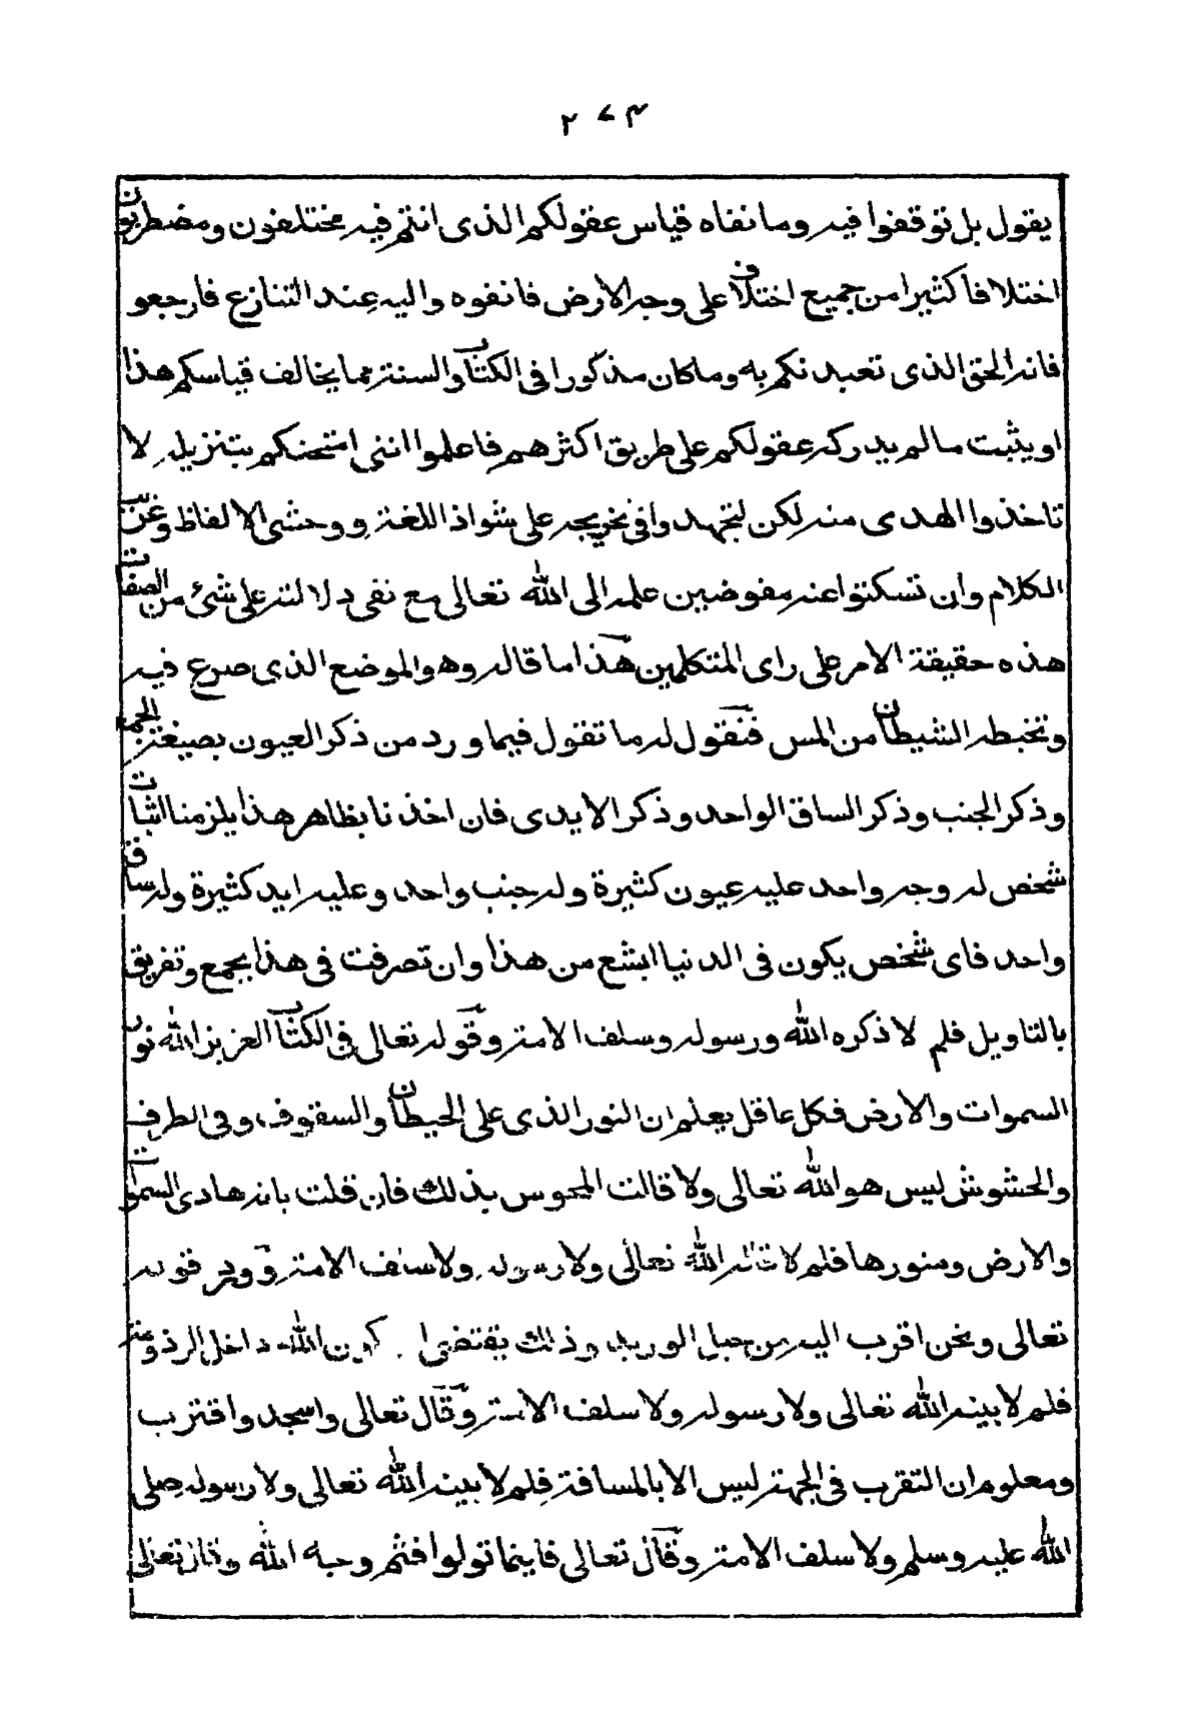 ٢٧٣
يقول بل توقفوا فيه وما نفاه قياس عقولكم الذى انتم فيه مختلفون ومضطربون
اختلافا كثيرا من جميع اختلاف على وجه الارض فانفوه واليه عند التنازع فارجعو
فانه الحق الذى تعبد نكم به وما كان مذكورا فى الكتاب والسنة مما يخالف قياسكم هذا
او يثبت ما لم يدركه عقولكم على طريق اكثرهم فاعلموا اننى امتحنكم بتنزيله لا
تاخذوا الهدى منه لكن لتجهدوا فى تخريجه على شواذ اللغة ووحشى الالفاظ وغريب
الكلام وان تسكتوا عنه مفوضين علمه الى الله تعالى مع نفى دلالته على شئ من الصفات
هذه حقيقة الامر على راى المتكلمين هذا ما قاله وهو الموضع الذى صرع فيه
وتخبطه الشيطان من المس فنقول له ما تقول فيما ورد من ذكر العيون بصيغة الجمع
وذكر الجنب وذكر الساق الواحد وذكر الايدى فان اخذنا بظاهر هذا يلزمنا اثبات
شخص له وجه واحد عليه عيون كثيرة وله جنب واحد وعليه ايد كثيرة وله ساق
واحد فاى شخص يكون فى الدنيا ابشع من هذا وان تصرفت فى هذا بجمع وتفريق
بالتاويل فلم لا ذكره الله ورسوله وسلف الامة وقوله تعالى فى الكتاب العزيز الله نور
السموات والارض فكل عاقل يعلم ان النور الذى على الحيطان والسقوف وفى الطرف
والحشوش ليس هو الله تعالى ولا قالت المجوس بذلك فان قلت بانه هادى السموات
والارض ومنورها فلم لا قاله الله تعالى ولا رسوله ولا سلف الامة وورد قوله
تعالى ونحن اقرب اليه من حبل الوريد وذلك يقتضى كون الله داخل الزردمة
فلم لا بينه الله تعالى ولا رسوله ولا سلف الامة وقال تعالى واسجد واقترب
ومعلوم ان التقرب فى الجهة ليس الا بالمسافة فلم لا بينه الله تعالى ولا رسوله صلى
الله عليه وسلم ولا سلف الامة وقال تعالى فاينما تولوا فثم وجه الله وقال تعالى